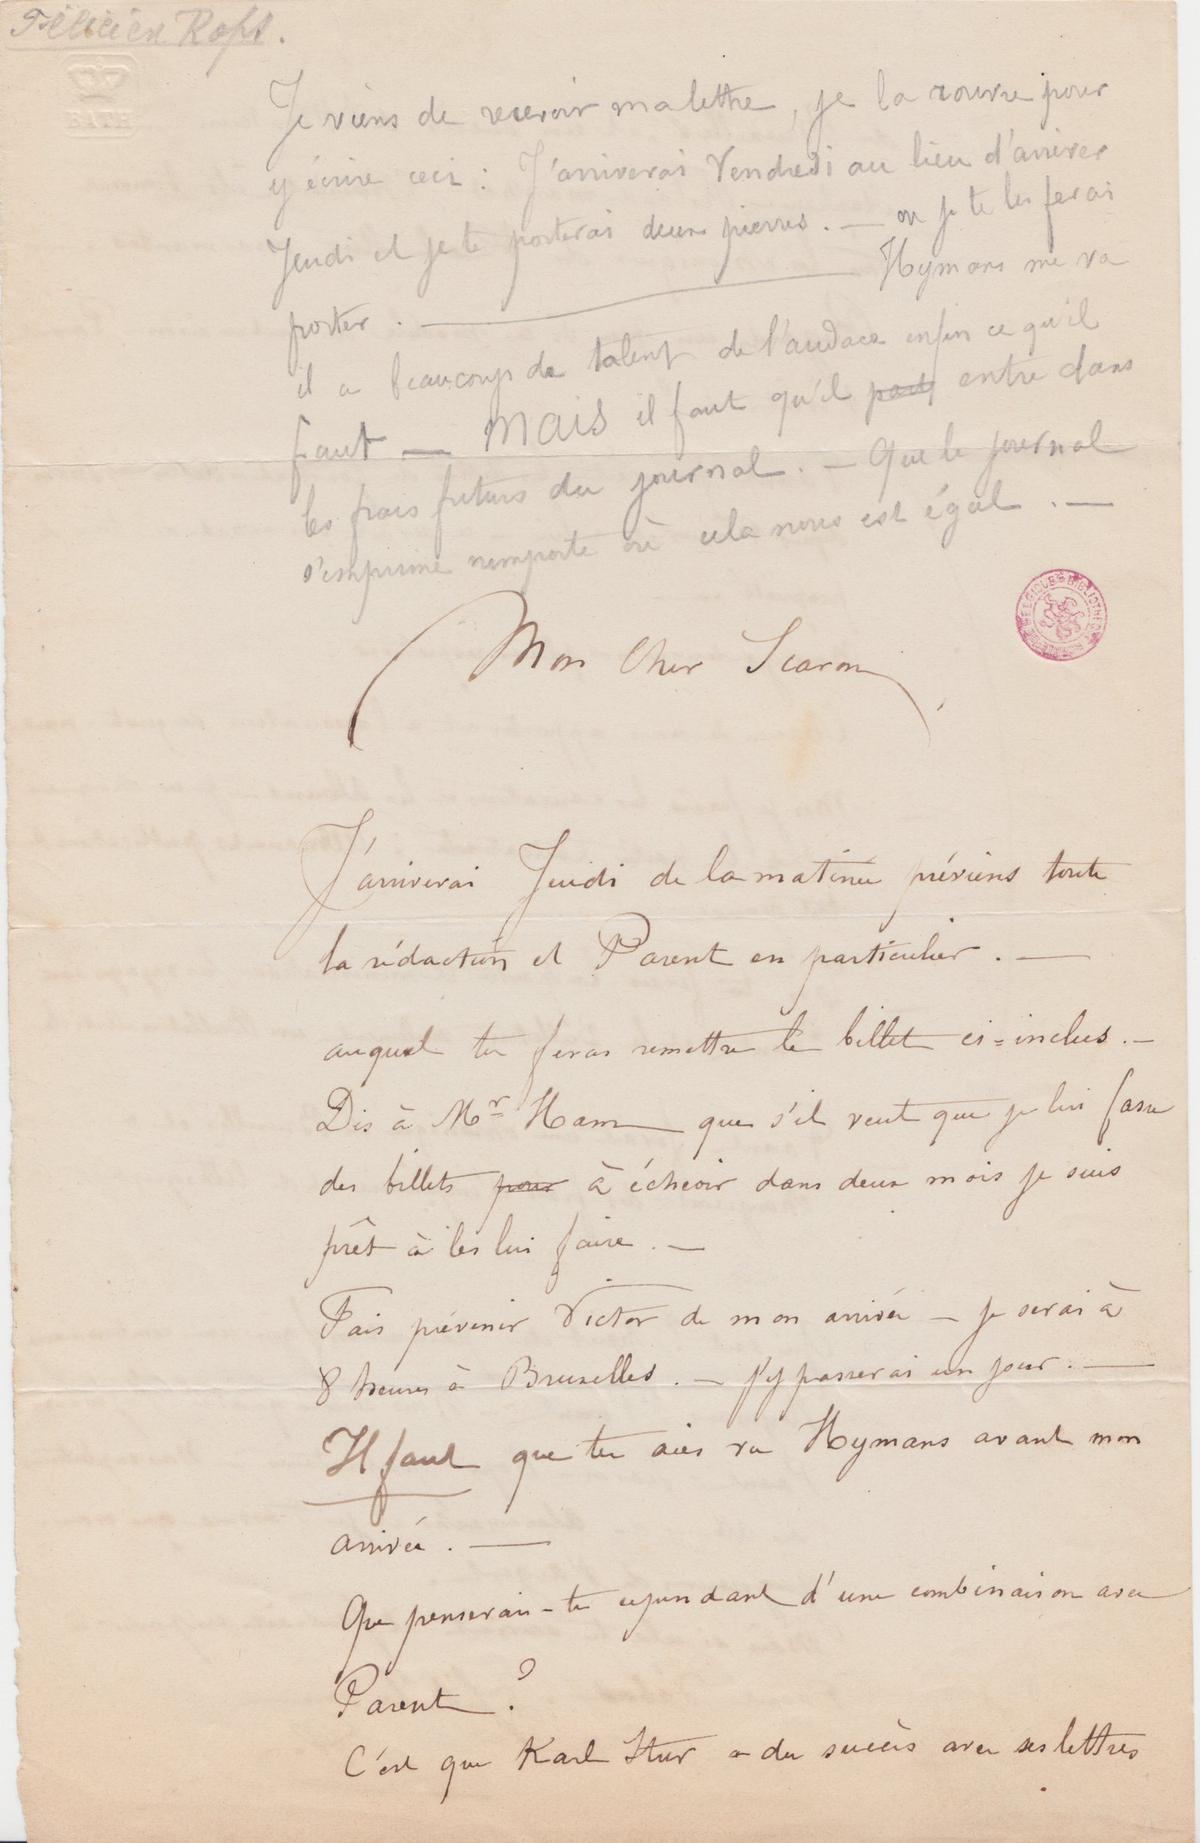 Félicien Rops.
BATH
Je viens de recevoir ma lettre, je la rouvre pour
y écrire ceci : J'arriverai Vendredi au lieu d'arriver
Jeudi et je te porterai deux pierres. — ou je te les ferai
porter. — Hymans me va
il a beaucoup de talent de l'audace enfin ce qu'il
faut — MAIS il faut qu'il entre dans
les frais futurs du journal. — Que le journal
s'imprime n'emporte où cela nous est égal. —
BIBLIOTHE
Mon Cher Scaron,
J'arriverai Jeudi de la matinée préviens toute
la rédaction et Parent en particulier. —
auquel tu feras remettre le billet ci=inclus. —
Dis à Mr Ham que s'il veut que je lui fasse
des billets pour à échéoir dans deux mois je suis
prêt à les lui faire. —
Fais prévenir Victor de mon arrivée — je serai à
8 heures à Bruxelles. — j'y passerai un jour. —
Il faut que tu aies vu Hymans avant mon
arrivée. —
Que penserais-tu cependant d'une combinaison avec
Parent ?
C'est que Karl Stur a du succès avec ses lettres